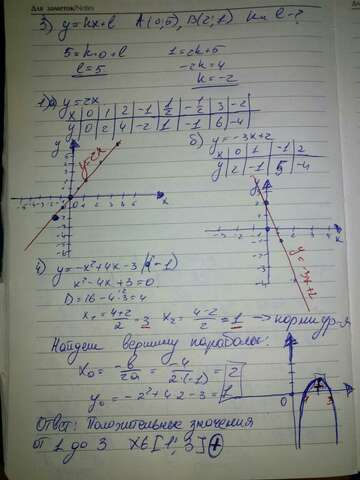 Для заметок/Notes
3) y=kx+b A(0;5), B(2;1) k и b-?
5=k·0+b 1=2k+5
b=5 -2k=4
k=-2
1) а) y=2x
x 0 1 2 -1 1/2 -1/2 3 -2
y 0 2 4 -2 1 -1 6 -4
б) y=-3x+2
x 0 1 -1 2
y 2 -1 5 -4
y=2x
y=-3x+2
4) y=-x²+4x-3
x²-4x+3=0
D=16-4·3=4
x₁=4+2/2=3 x₂=4-2/2=1 → корни ур-я
Найдем вершину параболы:
x₀=-b/2a=-4/2·(-1)=2
y₀=-2²+4·2-3=1
Ответ: Положительные значения
от 1 до 3 xϵ[1;3]